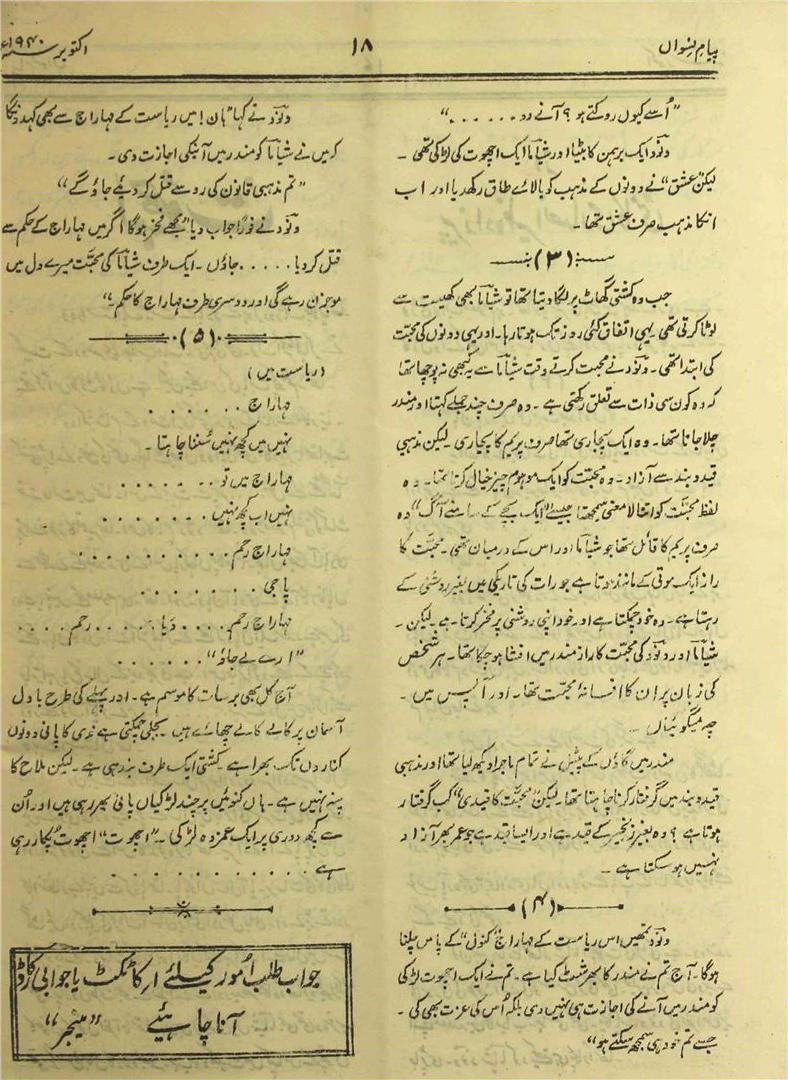 پیامِ نسواں
۱۸
اکتوبر سنہ ۱۹۴۰ء
"اُسے کیوں روکتے ہو؟ آنے دو......"
ونود ایک برہمن کا بیٹا اور شیاما ایک اچھوت کی لڑکی تھی۔
لیکن "عشق" نے دونوں کے مذہب کو بالائے طاق رکھدیا اور اب
انکا مذہب صرف عشق تھا۔
(۳)
جب وہ کشتی گھاٹ پر لگا دیتا تھا تو شیاما بھی کھیت سے
لوٹا کرتی تھی۔ یہی اتفاق کئی روز تک ہوتا رہا۔ اور یہی دونوں کی محبت
کی ابتدا تھی۔ ونود نے محبت کرتے وقت شیاما سے یہ کبھی نہ پوچھا تھا
کہ وہ کون سی ذات سے تعلق رکھتی ہے۔ وہ صرف چند جملے کہتا اور مندر
چلا جاتا تھا۔ وہ ایک پجاری تھا صرف پریم کا پجاری۔ لیکن مذہبی
قید و بند سے آزاد۔ وہ محبت کو ایک موہوم چیز خیال کرتا تھا۔ وہ
لفظ محبّت کو اتنا لا معنی سمجھتا جیسے "ایک بچے کے سامنے آگ" وہ
صرف پریم کا قائل تھا جو شیاما اور اس کے درمیان تھی۔ محبّت کا
راز ایک موتی کے مانند ہوتا ہے جو رات کی تاریکی میں بغیر روشنی کے
رہتا ہے۔ وہ خود چمکتا ہے اور خود اپنی روشنی پر فخر کرتا ہے۔ لیکن۔
شیاما اور ونود کی محبّت کا راز مندر میں افشا ہو چکا تھا۔ ہر شخص
کی زبان پر ان کا افسانۂ محبّت تھا۔ اور آپس میں۔
چہ میگوئیاں۔
مندر میں گاؤں کے پٹیل نے تمام ماجرا دیکھ لیا تھا اور مذہبی
قید و بند میں گرفتار کرنا چاہتا تھا۔ لیکن "محبّت کا قیدی" کب گرفتار
ہوتا ہے؟ وہ بغیر زنجیر کے قید ہے اور ایسا قید ہے جو عمر بھر آزاد
نہیں ہو سکتا ہے۔
(۴)
ونود تمھیں اس ریاست کے مہاراج "کنول" کے پاس چلنا
ہوگا۔ آج تم نے مندر کا بھرشٹ کیا ہے۔ تم نے ایک اچھوت لڑکی
کو مندر میں آنے کی اجازت ہی نہیں دی بلکہ اُس کی عزت بھی کی۔
جسے تم خود ہی سمجھ سکتے ہو"
ونود نے کہا "ہاں! میں ریاست کے مہاراج سے بھی کہدونگا
کہ میں نے شیاما کو مندر میں آنیکی اجازت دی۔
"تم مذہبی قانون کی رو سے قتل کر دیئے جاؤ گے"
ونود نے فوراً جواب دیا "مجھے فخر ہوگا اگر میں مہاراج کے حکم سے
قتل کر دیا..... جاؤں۔ ایک طرف شیاما کی محبّت میرے دل میں
موجزن رہے گی اور دوسری طرف مہاراج کا حکم۔"
(۵)
(ریاست میں)
مہاراج......
نہیں میں کچھ نہیں سُننا چاہتا۔
مہاراج میں تو......
نہیں اب کچھ نہیں.......
مہاراج رحم.........
پاجی.......
مہاراج رحم.... دیا..... رحم....
"ارے لے جاؤ"......
آج کل بھی برسات کا موسم ہے۔ اور پہلے کی طرح بادل
آسمان پر کالے کالے چھائے ہیں۔ بجلی چمکتی ہے ندی کا پانی دونوں
کناروں تک بھرا ہے۔ کشتی ایک طرف بہ رہی ہے۔ لیکن ملاح کا
پتہ نہیں ہے۔ ہاں کنوئیں پر چند لڑکیاں پانی بھر رہی ہیں اور اُن
سے کچھ دوری پر ایک غمزدہ لڑکی۔ "اچھوت" "اچھوت" پکار رہی
ہے...........
جواب طلب اُمور کیلئے ۱ر کا ٹکٹ یا جوابی کارڈ
آنا چاہئیے "منیجر"